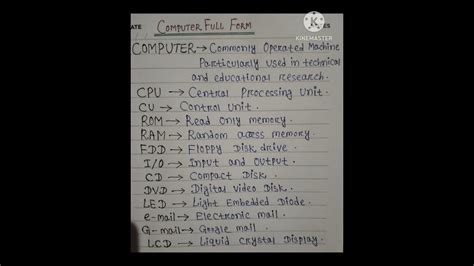 ATE COMPUTER FULL FORM ES
KINEMASTER
COMPUTER → Commonly Operated Machine
Particularly used in technical
and educational research.
CPU → Central Processing Unit.
CU → Control Unit.
ROM → Read Only memory.
RAM → Random access memory.
FDD → Floppy Disk drive.
I/O → Input and Output.
CD → Compact Disk.
DVD → Digital Video Disk.
LED → Light Embedded Diode.
e-mail → Electronic mail.
G-mail → Google mail.
LCD → Liquid Crystal Display.